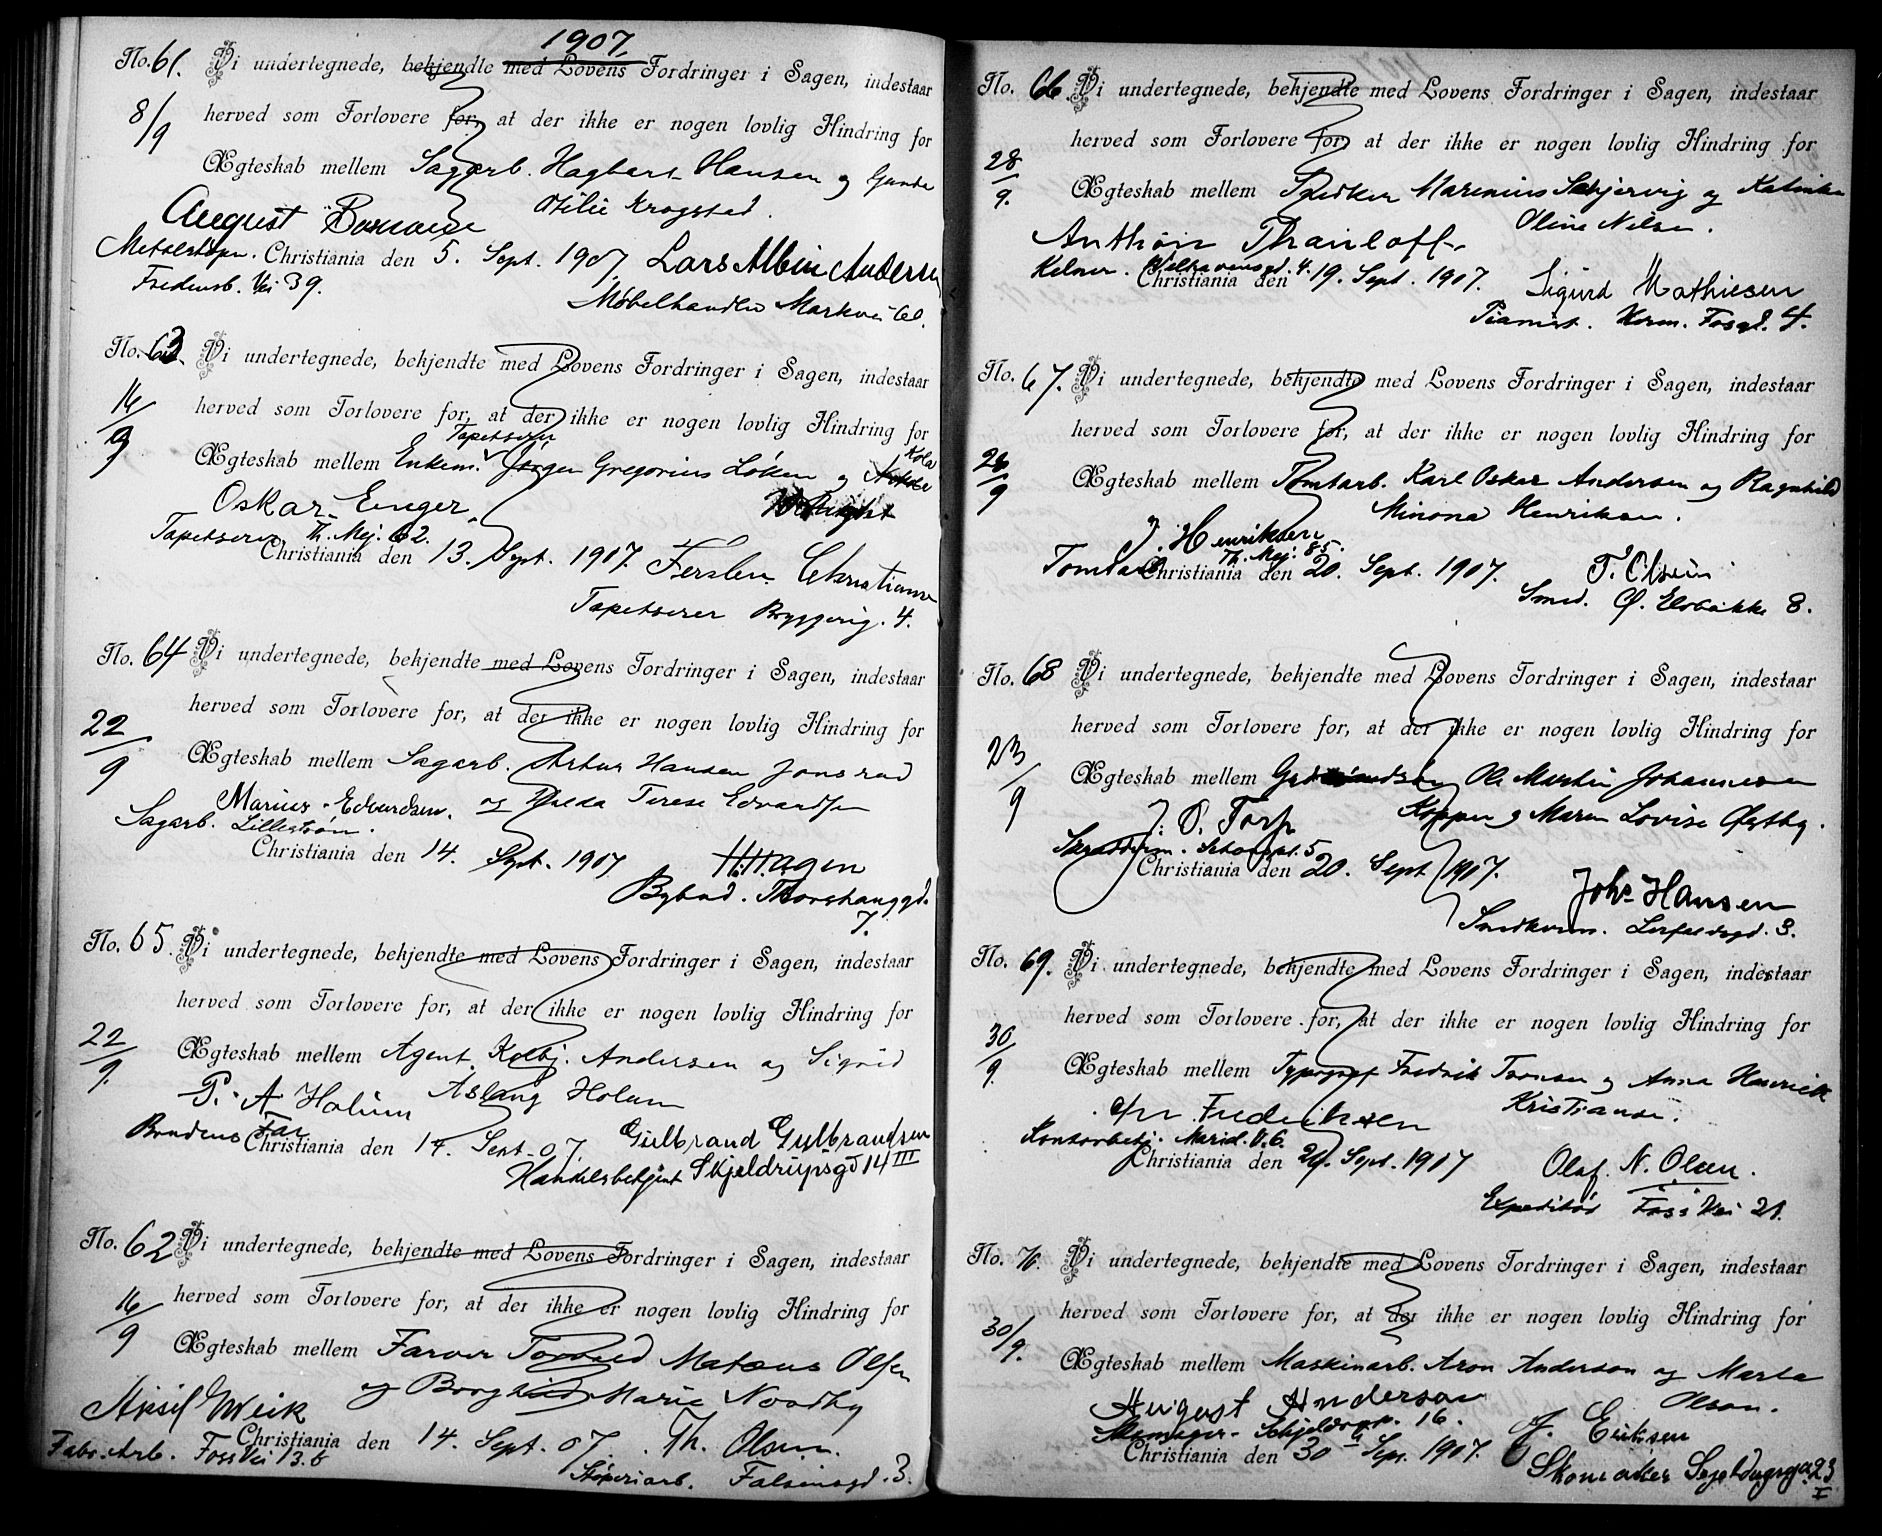 1907.
No. 61. Vi undertegnede, bekjendte med Lovens Fordringer i Sagen, indestaar
8/9 herved som Forlovere for, at der ikke er nogen lovlig Hindring for
Ægteskab mellem Sagarb. Hagbart Hansen og Gunda
Otilie Krogstad.
August
Christiania den 5. Sept. 1907. Lars Albin Andersen
Fredensb. Vei 39. Møbelhandler Markvei 61.
No. 63 Vi undertegnede, bekjendte med Lovens Fordringer i Sagen, indestaar
16/9 herved som Forlovere for, at der ikke er nogen lovlig Hindring for
Tapetserer
Ægteskab mellem Enkem. Jørgen Gregorius Løken og
Oskar Enger.
Tapetserer Th. Mej. 62.
Christiania den 13. Sept. 1907.
Tapetserer Bryggerig. 4.
No. 64 Vi undertegnede, bekjendte med Lovens Fordringer i Sagen, indestaar
22/9 herved som Forlovere for, at der ikke er nogen lovlig Hindring for
Ægteskab mellem Sagarb. Artur Hansen Jonsrud
og Hulda Terese Edvardsen
Marius Edvardsen.
Sagarb. Lillestrøm.
Christiania den 14. Sept. 1907 H. Hagen
Bybud. Thorshauggd. 7.
No. 65. Vi undertegnede, bekjendte med Lovens Fordringer i Sagen, indestaar
22/9. herved som Forlovere for, at der ikke er nogen lovlig Hindring for
Ægteskab mellem Agent Kolbj. Andersen og Sigrid
Aslaug Holum
P. A Holum
Brudens Far
Christiania den 14. Sept. 07. Gulbrand Gulbrandsen
Handelsbetjent Skjeldrupsgd 14 III
No. 62 Vi undertegnede, bekjendte med Lovens Fordringer i Sagen, indestaar
16/9 herved som Forlovere for, at der ikke er nogen lovlig Hindring for
Ægteskab mellem Farver Matæus Olsen
og Borghild Marie Nordby
Aksil Meik
Christiania den 14. Sept. 07. Th. Olsen.
Fabr. Arb. Foss Vei 13.b Støperiarb. Falsensgd. 3.
No. 66 Vi undertegnede, bekjendte med Lovens Fordringer i Sagen, indestaar
28/9. herved som Forlovere for, at der ikke er nogen lovlig Hindring for
Ægteskab mellem Snedker Marenius Schjervig og Katinka
Oline Nilsen.
Anthon
Kelner. Welhavensgd. 4.
Christiania den 19. Sept. 1907. Sigurd Mathiesen
Pianist. Herm. Fosgd. 4.
No. 67. Vi undertegnede, bekjendte med Lovens Fordringer i Sagen, indestaar
herved som Forlovere for, at der ikke er nogen lovlig Hindring for
Ægteskab mellem Tomtarb. Karl Oskar Andersen og Ragnhild
Minona Henriksen.
J. Henriksen
Tomtarb. Th. Mej. 85.
Christiania den 20. Sept. 1907. T. Olsen
Smed. Ø. Elvbakke 8.
No. 68 Vi undertegnede, bekjendte med Lovens Fordringer i Sagen, indestaar
23/9 herved som Forlovere for, at der ikke er nogen lovlig Hindring for
Ægteskab mellem Ole Martin Johannesen
Koppen og Maren Lovise Østby.
J. O. Torp
Christiania den 20. Sept 1907. Johs Hansen
Snedkerm. Lerfaldsgd. 3.
No. 69. Vi undertegnede, bekjendte med Lovens Fordringer i Sagen, indestaar
30/9. herved som Forlovere for, at der ikke er nogen lovlig Hindring for
Ægteskab mellem Typograf Fredrik Tornsen og Anna Henrikke
Kristiansen.
Frederiksen
Kontorbetj. Marid. V. 6.
Christiania den 24. Sept. 1907 Olaf N. Olsen.
Expeditør Foss Vei 21.
No. 70. Vi undertegnede, bekjendte med Lovens Fordringer i Sagen, indestaar
30/9. herved som Forlovere for, at der ikke er nogen lovlig Hindring for
Ægteskab mellem Maskinarb. Aron Anderson og Marta
Olson.
August Anderson
Christiania den 30 Sep. 1907. J. Eriksen